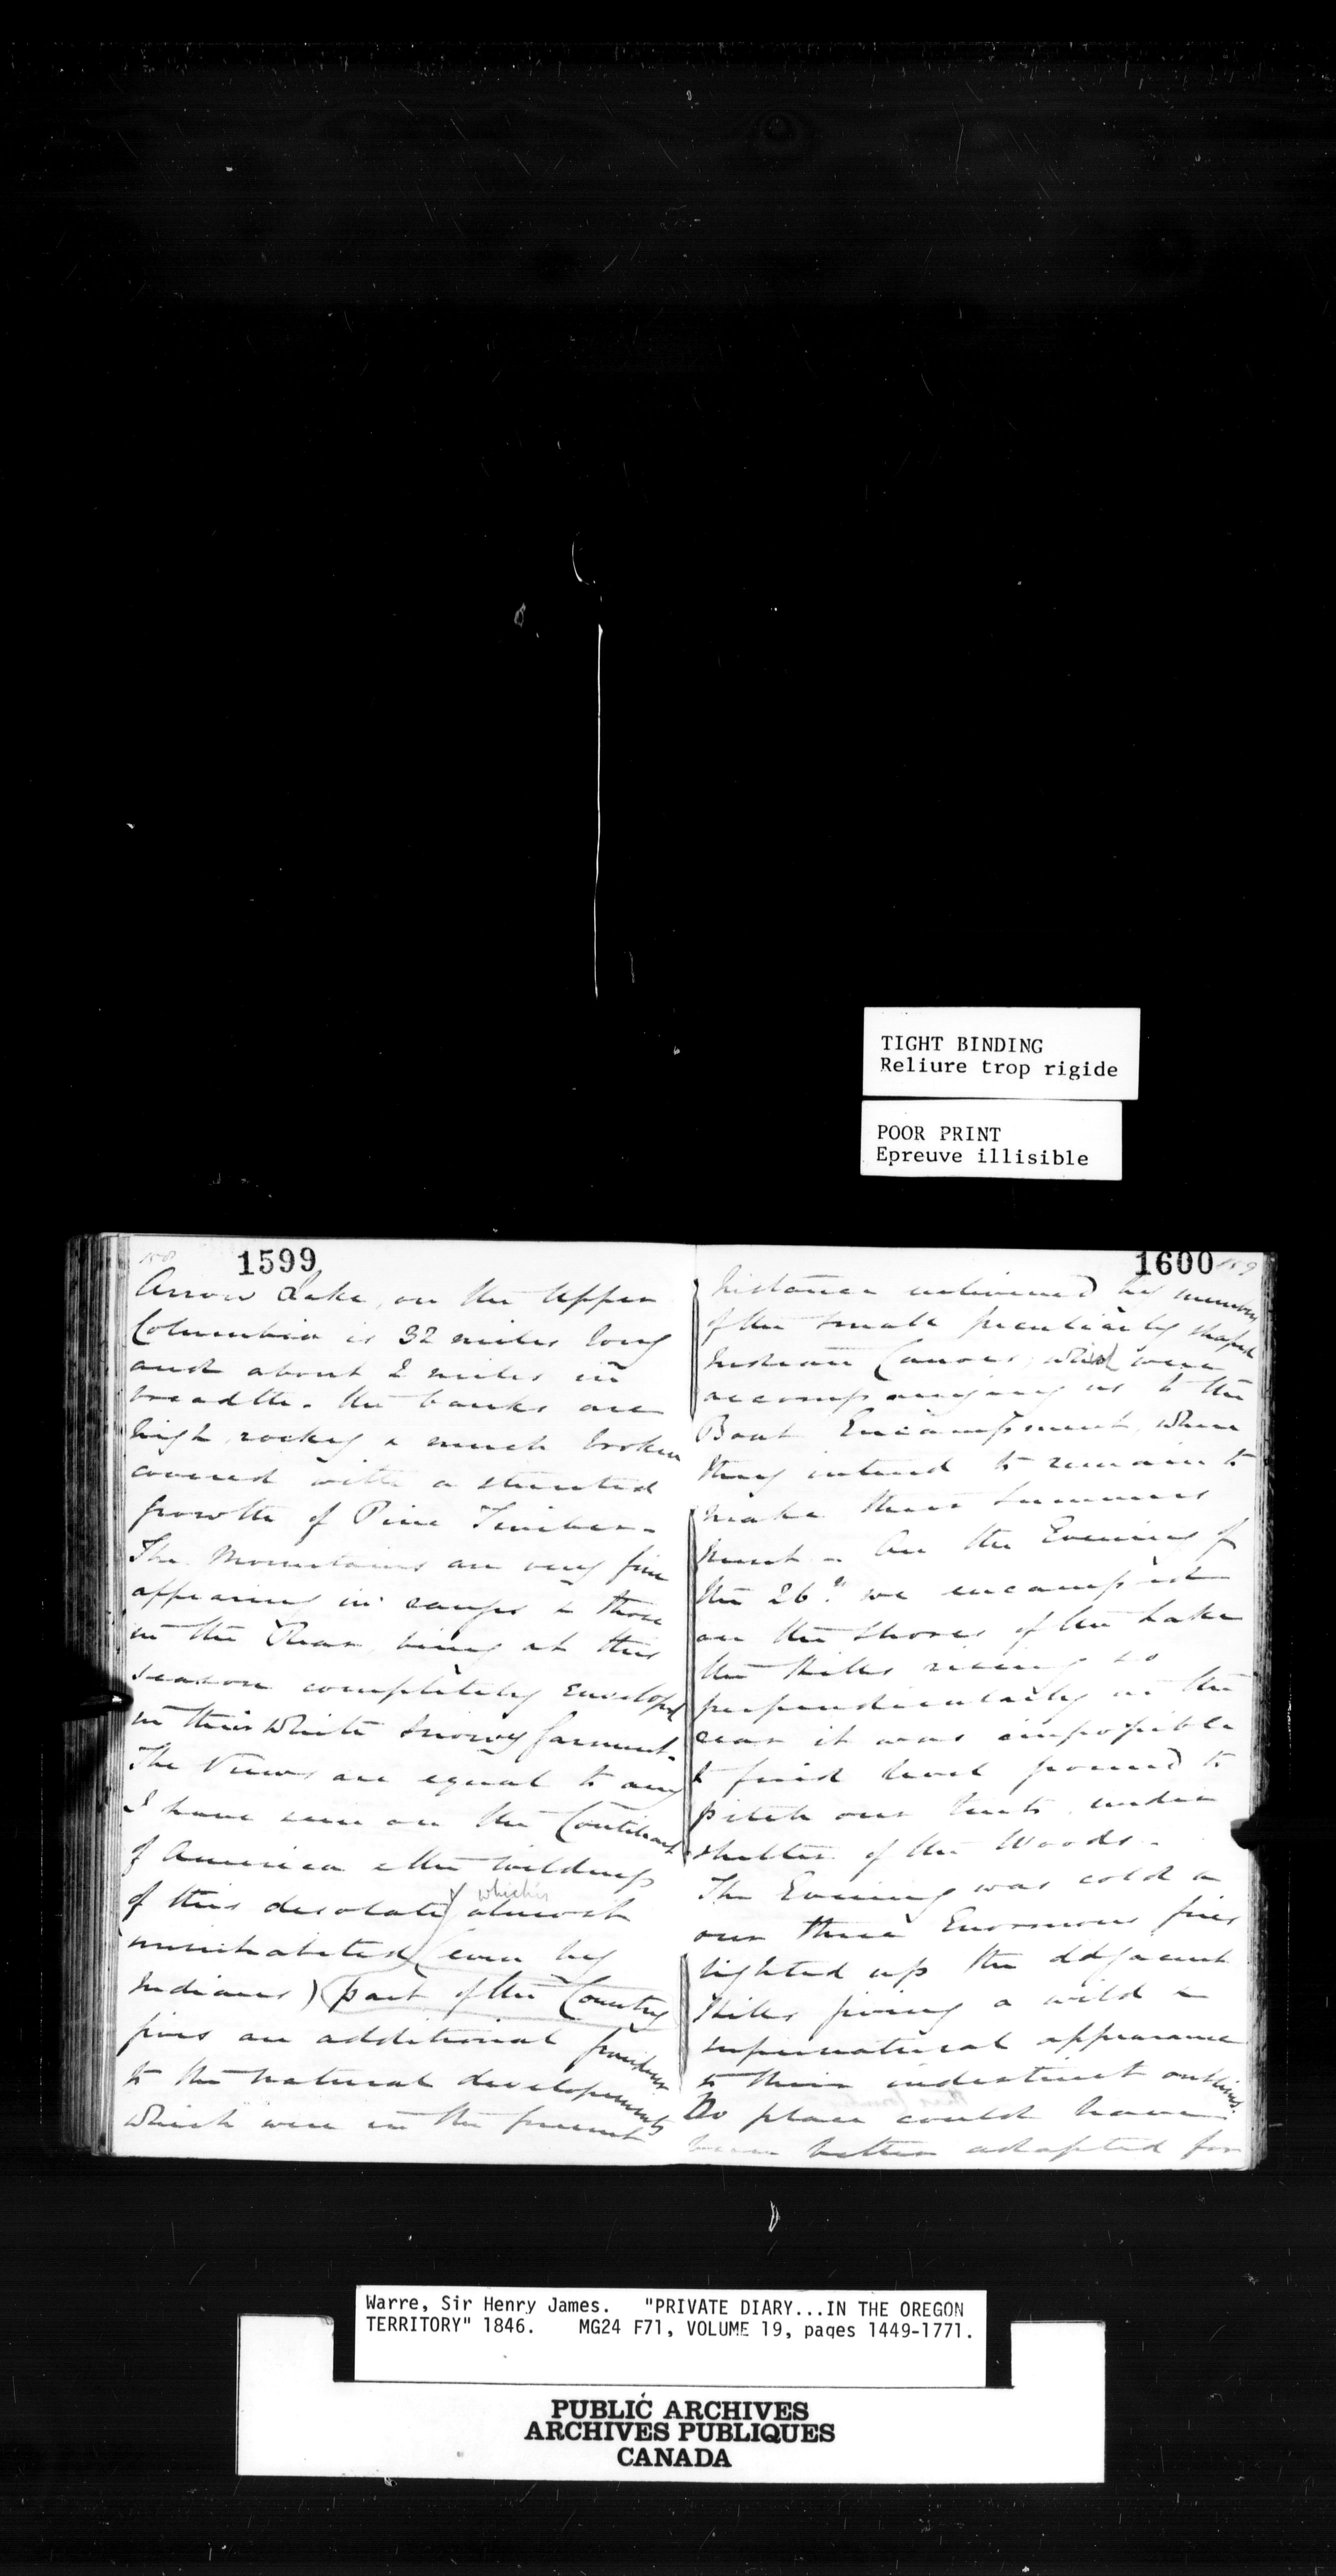 TIGHT BINDING
Reliure trop rigide
POOR PRINT
Epreuve illisible
158
1599
Arrow Lake, on the Upper
Columbia is 32 miles long
and about 2 miles in
breadth. the banks are
high, rocky & much broken
covered with a stunted
growth of Pine Timber-
The Mountains are very fine
appearing in ranges & those
in the Rear, being at this
season completely enveloped
in their White Snowy garment.
The Views are equal to any
I have seen on the Continent
of America & the wildness
of this desolate which is almost
uninhabited (even by
Indians) part of the Country
gives an additional grandeur
to the natural developements
which were in the present
1600
159
Instance enlivened by numbers
of the small peculiarly shaped
Indian Canoes, which were
accompanying us to the
Boat Encampment, where
they intend to remain to
make their Summer
hunt - On the Evening of
the 26th we encamped
on the shores of the Lake
the Hills rising so
perpendicularly in the
rear it was impossible
to find level ground to
pitch our tents under
shelter of the Woods-
The Evening was cold &
our three Enormous fires
lighted up the adjacent
Hills giving a wild &
supernatural appearance
to their indistinct outlines.
No place could have
been better adapted for
Warre, Sir Henry James. "PRIVATE DIARY...IN THE OREGON
TERRITORY" 1846. MG24 F71, VOLUME 19, pages 1449-1771.
PUBLIC ARCHIVES
ARCHIVES PUBLIQUES
CANADA